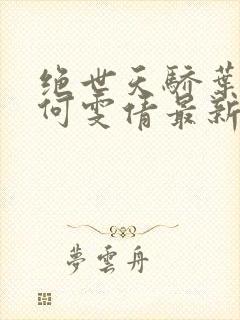 绝世天骄葉
何雯倩最新
夢雲舟